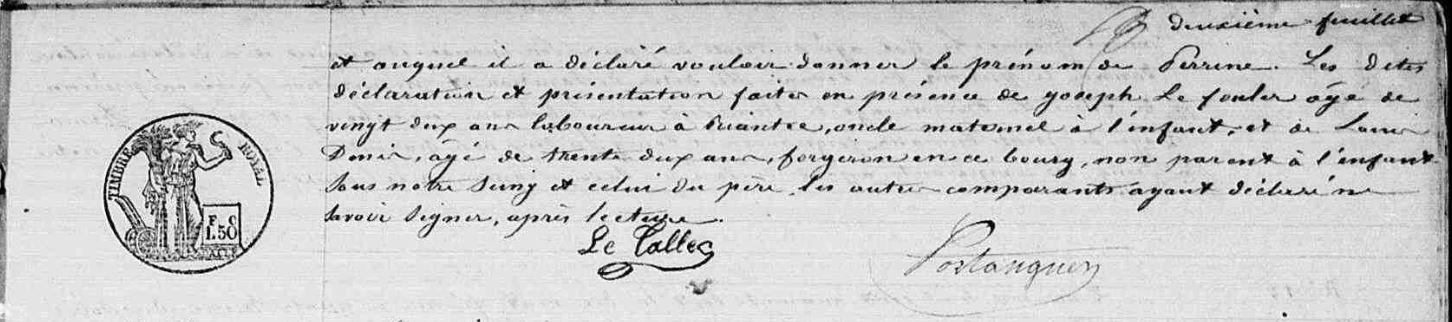 deuxième feuillet
et auquel il a déclaré vouloir donner le prénom de Perrine. Les dites
déclaration et présentation faites en présence de joseph Le fouler âgé de
vingt deux ans laboureur à , oncle maternel à l'enfant, et de Louis
Denis, âgé de trente deux ans, forgeron en ce bourg, non parent à l'enfant
sous notre seing et celui du père, les autres comparants ayant déclaré ne
savoir signer, après lecture.
TIMBRE ROYAL
F. C
1.50
Le Tallec
Postanguen